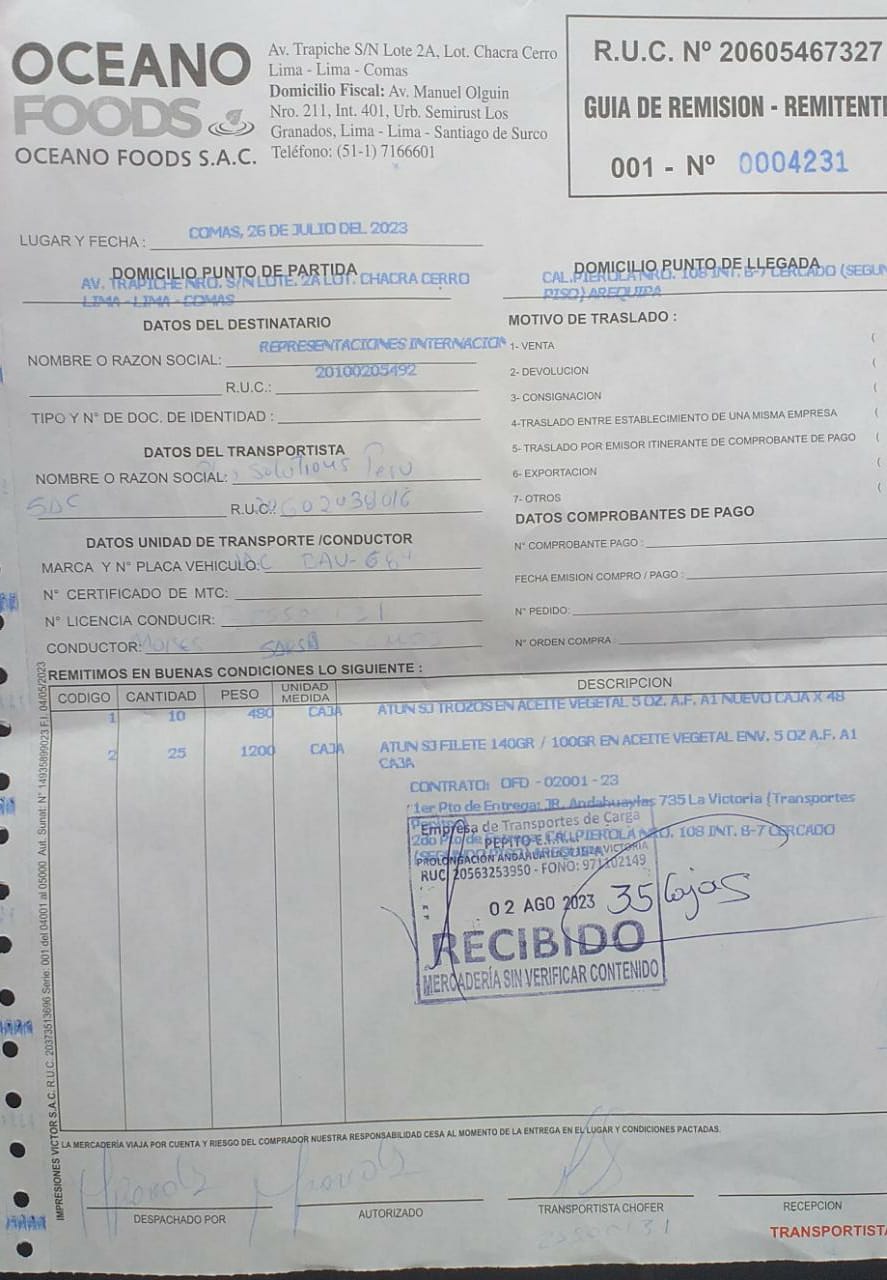 OCEANO
FOODS
OCEANO FOODS S.A.C.
Av. Trapiche S/N Lote 2A, Lot. Chacra Cerro
Lima - Lima - Comas
Domicilio Fiscal: Av. Manuel Olguin
Nro. 211, Int. 401, Urb. Semirust Los
Granados, Lima - Lima - Santiago de Surco
Teléfono: (51-1) 7166601
R.U.C. Nº 20605467327
GUIA DE REMISION - REMITENTE
001 - Nº 0004231
LUGAR Y FECHA : COMAS, 26 DE JULIO DEL 2023
DOMICILIO PUNTO DE PARTIDA
AV. TRAPICHE NRO. S/N LOTE. 2A LOT. CHACRA CERRO
LIMA - LIMA - COMAS
DOMICILIO PUNTO DE LLEGADA
CAL.PIEROLA NRO. 108 INT. B-7 CERCADO (SEGUN
PISO) AREQUIPA
DATOS DEL DESTINATARIO
NOMBRE O RAZON SOCIAL: REPRESENTACIONES INTERNACION
R.U.C.: 20100205492
TIPO Y N° DE DOC. DE IDENTIDAD :
DATOS DEL TRANSPORTISTA
NOMBRE O RAZON SOCIAL: Solutions Peru
SAC R.U.C.:
DATOS UNIDAD DE TRANSPORTE /CONDUCTOR
MARCA Y N° PLACA VEHICULO:
N° CERTIFICADO DE MTC:
N° LICENCIA CONDUCIR:
CONDUCTOR:
MOTIVO DE TRASLADO :
1- VENTA (
2- DEVOLUCION (
3- CONSIGNACION (
4-TRASLADO ENTRE ESTABLECIMIENTO DE UNA MISMA EMPRESA (
5- TRASLADO POR EMISOR ITINERANTE DE COMPROBANTE DE PAGO (
6- EXPORTACION (
7- OTROS (
DATOS COMPROBANTES DE PAGO
N° COMPROBANTE PAGO :
FECHA EMISION COMPRO / PAGO :
N° PEDIDO:
N° ORDEN COMPRA :
REMITIMOS EN BUENAS CONDICIONES LO SIGUIENTE :
CODIGO CANTIDAD PESO UNIDAD MEDIDA DESCRIPCION
1 10 480 CAJA ATUN SJ TROZOS EN ACEITE VEGETAL 5 OZ. A.F. A1 NUEVO CAJA X 48
2 25 1200 CAJA ATUN SJ FILETE 140GR / 100GR EN ACEITE VEGETAL ENV. 5 OZ A.F. A1
CAJA
CONTRATO: OFD - 02001 - 23
1er Pto de Entrega: JR. Andahuaylas 735 La Victoria (Transportes
2do Pto de CAL.PIEROLA NRO. 108 INT. B-7 CERCADO
Empresa de Transportes de Carga
PEPITO E.I.R.L.
PROLONGACIÓN ANDAHUAYLAS VICTORIA
RUC 20563253950 - FONO: 971102149
02 AGO 2023
35 Cajas
RECIBIDO
MERCADERÍA SIN VERIFICAR CONTENIDO
IMPRESIONES VICTOR S.A.C. R.U.C. 20373513696 Serie: 001 del 04001 al 05000 Aut. Sunat: N° 14935899023 F.I. 04/05/2023
LA MERCADERÍA VIAJA POR CUENTA Y RIESGO DEL COMPRADOR NUESTRA RESPONSABILIDAD CESA AL MOMENTO DE LA ENTREGA EN EL LUGAR Y CONDICIONES PACTADAS.
DESPACHADO POR
AUTORIZADO
TRANSPORTISTA CHOFER
RECEPCION
TRANSPORTISTA